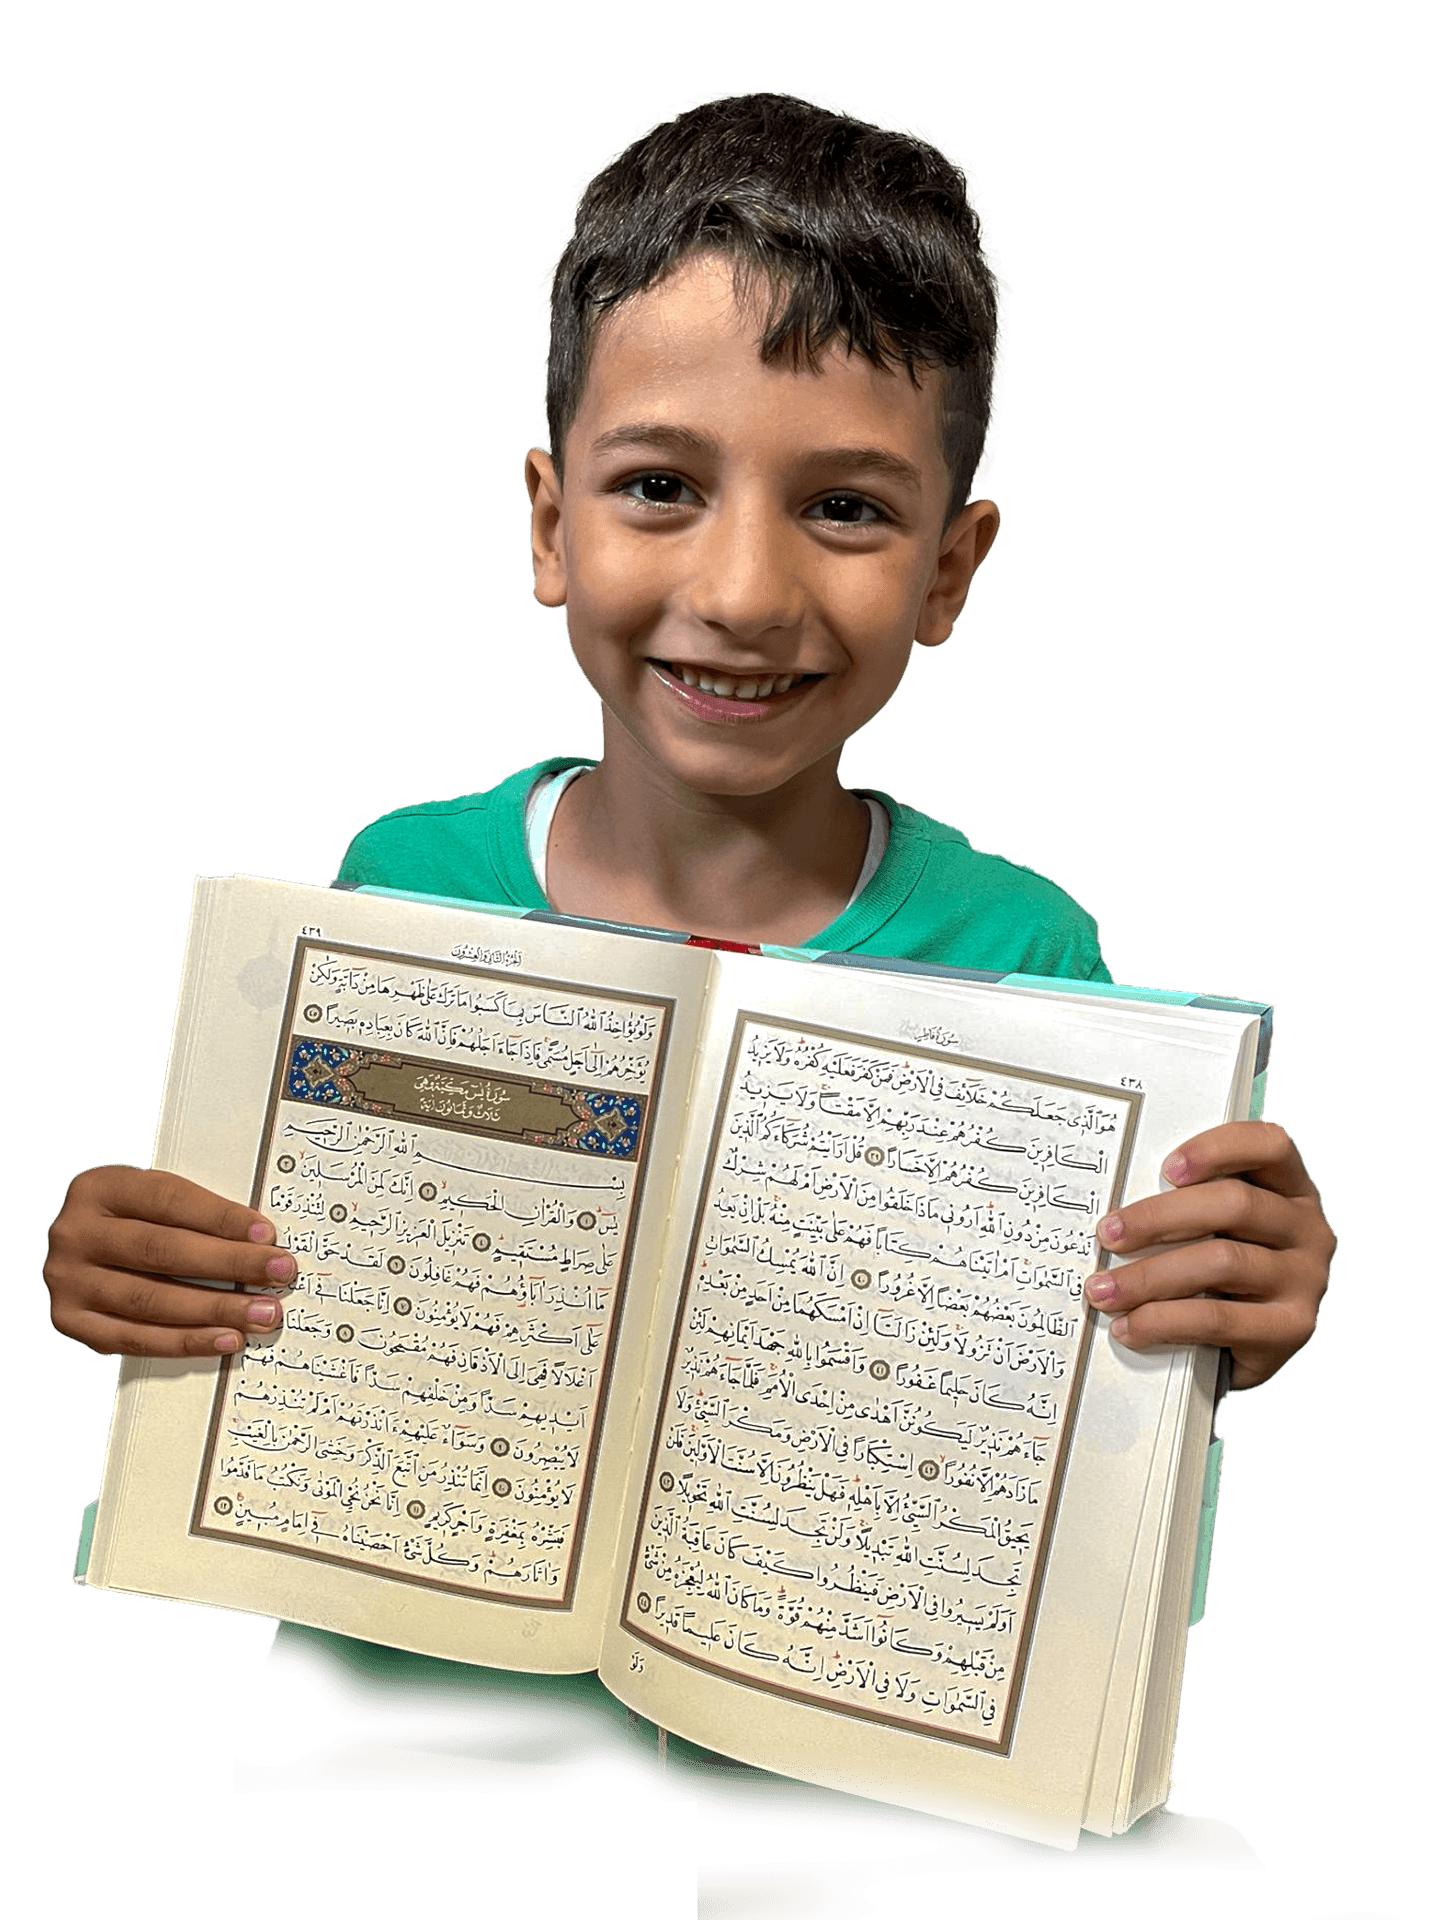 سُورَةُ فَاطِرٍ
٤٣٨
هُوَ الَّذ۪ي جَعَلَكُمْ خَلَٓائِفَ فِي الْاَرْضِۜ فَمَنْ كَفَرَ فَعَلَيْهِ كُفْرُهُۜ وَلَا يَز۪يدُ
الْكَافِر۪ينَ كُفْرُهُمْ عِنْدَ رَبِّهِمْ اِلَّا مَقْتًاۚ وَلَا يَز۪يدُ
الْكَافِر۪ينَ كُفْرُهُمْ اِلَّا خَسَارًا ٣٩ قُلْ اَرَاَيْتُمْ شُرَكَٓاءَكُمُ الَّذ۪ينَ
تَدْعُونَ مِنْ دُونِ اللّٰهِۜ اَرُون۪ي مَاذَا خَلَقُوا مِنَ الْاَرْضِ اَمْ لَهُمْ شِرْكٌ
فِي السَّمٰوَاتِۚ اَمْ اٰتَيْنَاهُمْ كِتَابًا فَهُمْ عَلٰى بَيِّنَتٍ مِنْهُۚ بَلْ اِنْ يَعِدُ
الظَّالِمُونَ بَعْضُهُمْ بَعْضًا اِلَّا غُرُورًا ٤٠ اِنَّ اللّٰهَ يُمْسِكُ السَّمٰوَاتِ
وَالْاَرْضَ اَنْ تَزُولَاۚ وَلَئِنْ زَالَتَٓا اِنْ اَمْسَكَهُمَا مِنْ اَحَدٍ مِنْ بَعْدِه۪ۜ
اِنَّهُ كَانَ حَل۪يمًا غَفُورًا ٤١ وَاَقْسَمُوا بِاللّٰهِ جَهْدَ اَيْمَانِهِمْ لَئِنْ
جَٓاءَهُمْ نَذ۪يرٌ لَيَكُونُنَّ اَهْدٰى مِنْ اِحْدَى الْاُمَمِۚ فَلَمَّا جَٓاءَهُمْ نَذ۪يرٌ
مَازَادَهُمْ اِلَّا نُفُورًاۙ ٤٢ اِسْتِكْبَارًا فِي الْاَرْضِ وَمَكْرَ السَّيِّئِۜ وَلَا
يَح۪يقُ الْمَكْرُ السَّيِّئُ اِلَّا بِاَهْلِه۪ۜ فَهَلْ يَنْظُرُونَ اِلَّا سُنَّتَ الْاَوَّل۪ينَۚ فَلَنْ
تَجِدَ لِسُنَّتِ اللّٰهِ تَبْد۪يلًاۚ وَلَنْ تَجِدَ لِسُنَّتِ اللّٰهِ تَحْو۪يلًا ٤٣
اَوَلَمْ يَس۪يرُوا فِي الْاَرْضِ فَيَنْظُرُوا كَيْفَ كَانَ عَاقِبَةُ الَّذ۪ينَ
مِنْ قَبْلِهِمْ وَكَانُٓوا اَشَدَّ مِنْهُمْ قُوَّةًۜ وَمَا كَانَ اللّٰهُ لِيُعْجِزَهُ مِنْ شَيْءٍ
فِي السَّمٰوَاتِ وَلَا فِي الْاَرْضِۜ اِنَّهُ كَانَ عَل۪يمًا قَد۪يرًا ٤٤
وَلَوْ
٤٣٩
اَلْجُزْءُ الثَّانِي وَالْعِشْرُونَ
وَلَوْ يُؤَاخِذُ اللّٰهُ النَّاسَ بِمَا كَسَبُوا مَا تَرَكَ عَلٰى ظَهْرِهَا مِنْ دَٓابَّةٍ وَلٰكِنْ
يُؤَخِّرُهُمْ اِلٰٓى اَجَلٍ مُسَمًّىۚ فَاِذَا جَٓاءَ اَجَلُهُمْ فَاِنَّ اللّٰهَ كَانَ بِعِبَادِه۪ بَص۪يرًا ٤٥
سُورَةُ يٰسٓ مَكِّيَّةٌ وَهِيَ
ثَلَاثٌ وَثَمَانُونَ اٰيَةً
بِسْمِ اللّٰهِ الرَّحْمٰنِ الرَّح۪يمِ
يٰسٓۜ ١ وَالْقُرْاٰنِ الْحَك۪يمِۙ ٢ اِنَّكَ لَمِنَ الْمُرْسَل۪ينَۙ ٣
عَلٰى صِرَاطٍ مُسْتَق۪يمٍۜ ٤ تَنْز۪يلَ الْعَز۪يزِ الرَّح۪يمِۙ ٥ لِتُنْذِرَ قَوْمًا
مَٓا اُنْذِرَ اٰبَٓاؤُهُمْ فَهُمْ غَافِلُونَ ٦ لَقَدْ حَقَّ الْقَوْلُ
عَلٰٓى اَكْثَرِهِمْ فَهُمْ لَا يُؤْمِنُونَ ٧ اِنَّا جَعَلْنَا ف۪ٓي
اَغْلَالًا فَهِيَ اِلَى الْاَذْقَانِ فَهُمْ مُقْمَحُونَ ٨ وَجَعَلْنَا
اَيْد۪يهِمْ سَدًّا وَمِنْ خَلْفِهِمْ سَدًّا فَاَغْشَيْنَاهُمْ فَهُمْ
لَا يُبْصِرُونَ ٩ وَسَوَٓاءٌ عَلَيْهِمْ ءَاَنْذَرْتَهُمْ اَمْ لَمْ تُنْذِرْهُمْ
لَا يُؤْمِنُونَ ١٠ اِنَّمَا تُنْذِرُ مَنِ اتَّبَعَ الذِّكْرَ وَخَشِيَ الرَّحْمٰنَ بِالْغَيْبِۚ
فَبَشِّرْهُ بِمَغْفِرَةٍ وَاَجْرٍ كَر۪يمٍ ١١ اِنَّا نَحْنُ نُحْيِي الْمَوْتٰى وَنَكْتُبُ مَا قَدَّمُوا
وَاٰثَارَهُمْۜ وَكُلَّ شَيْءٍ اَحْصَيْنَاهُ ف۪ٓي اِمَامٍ مُب۪ينٍ ١٢